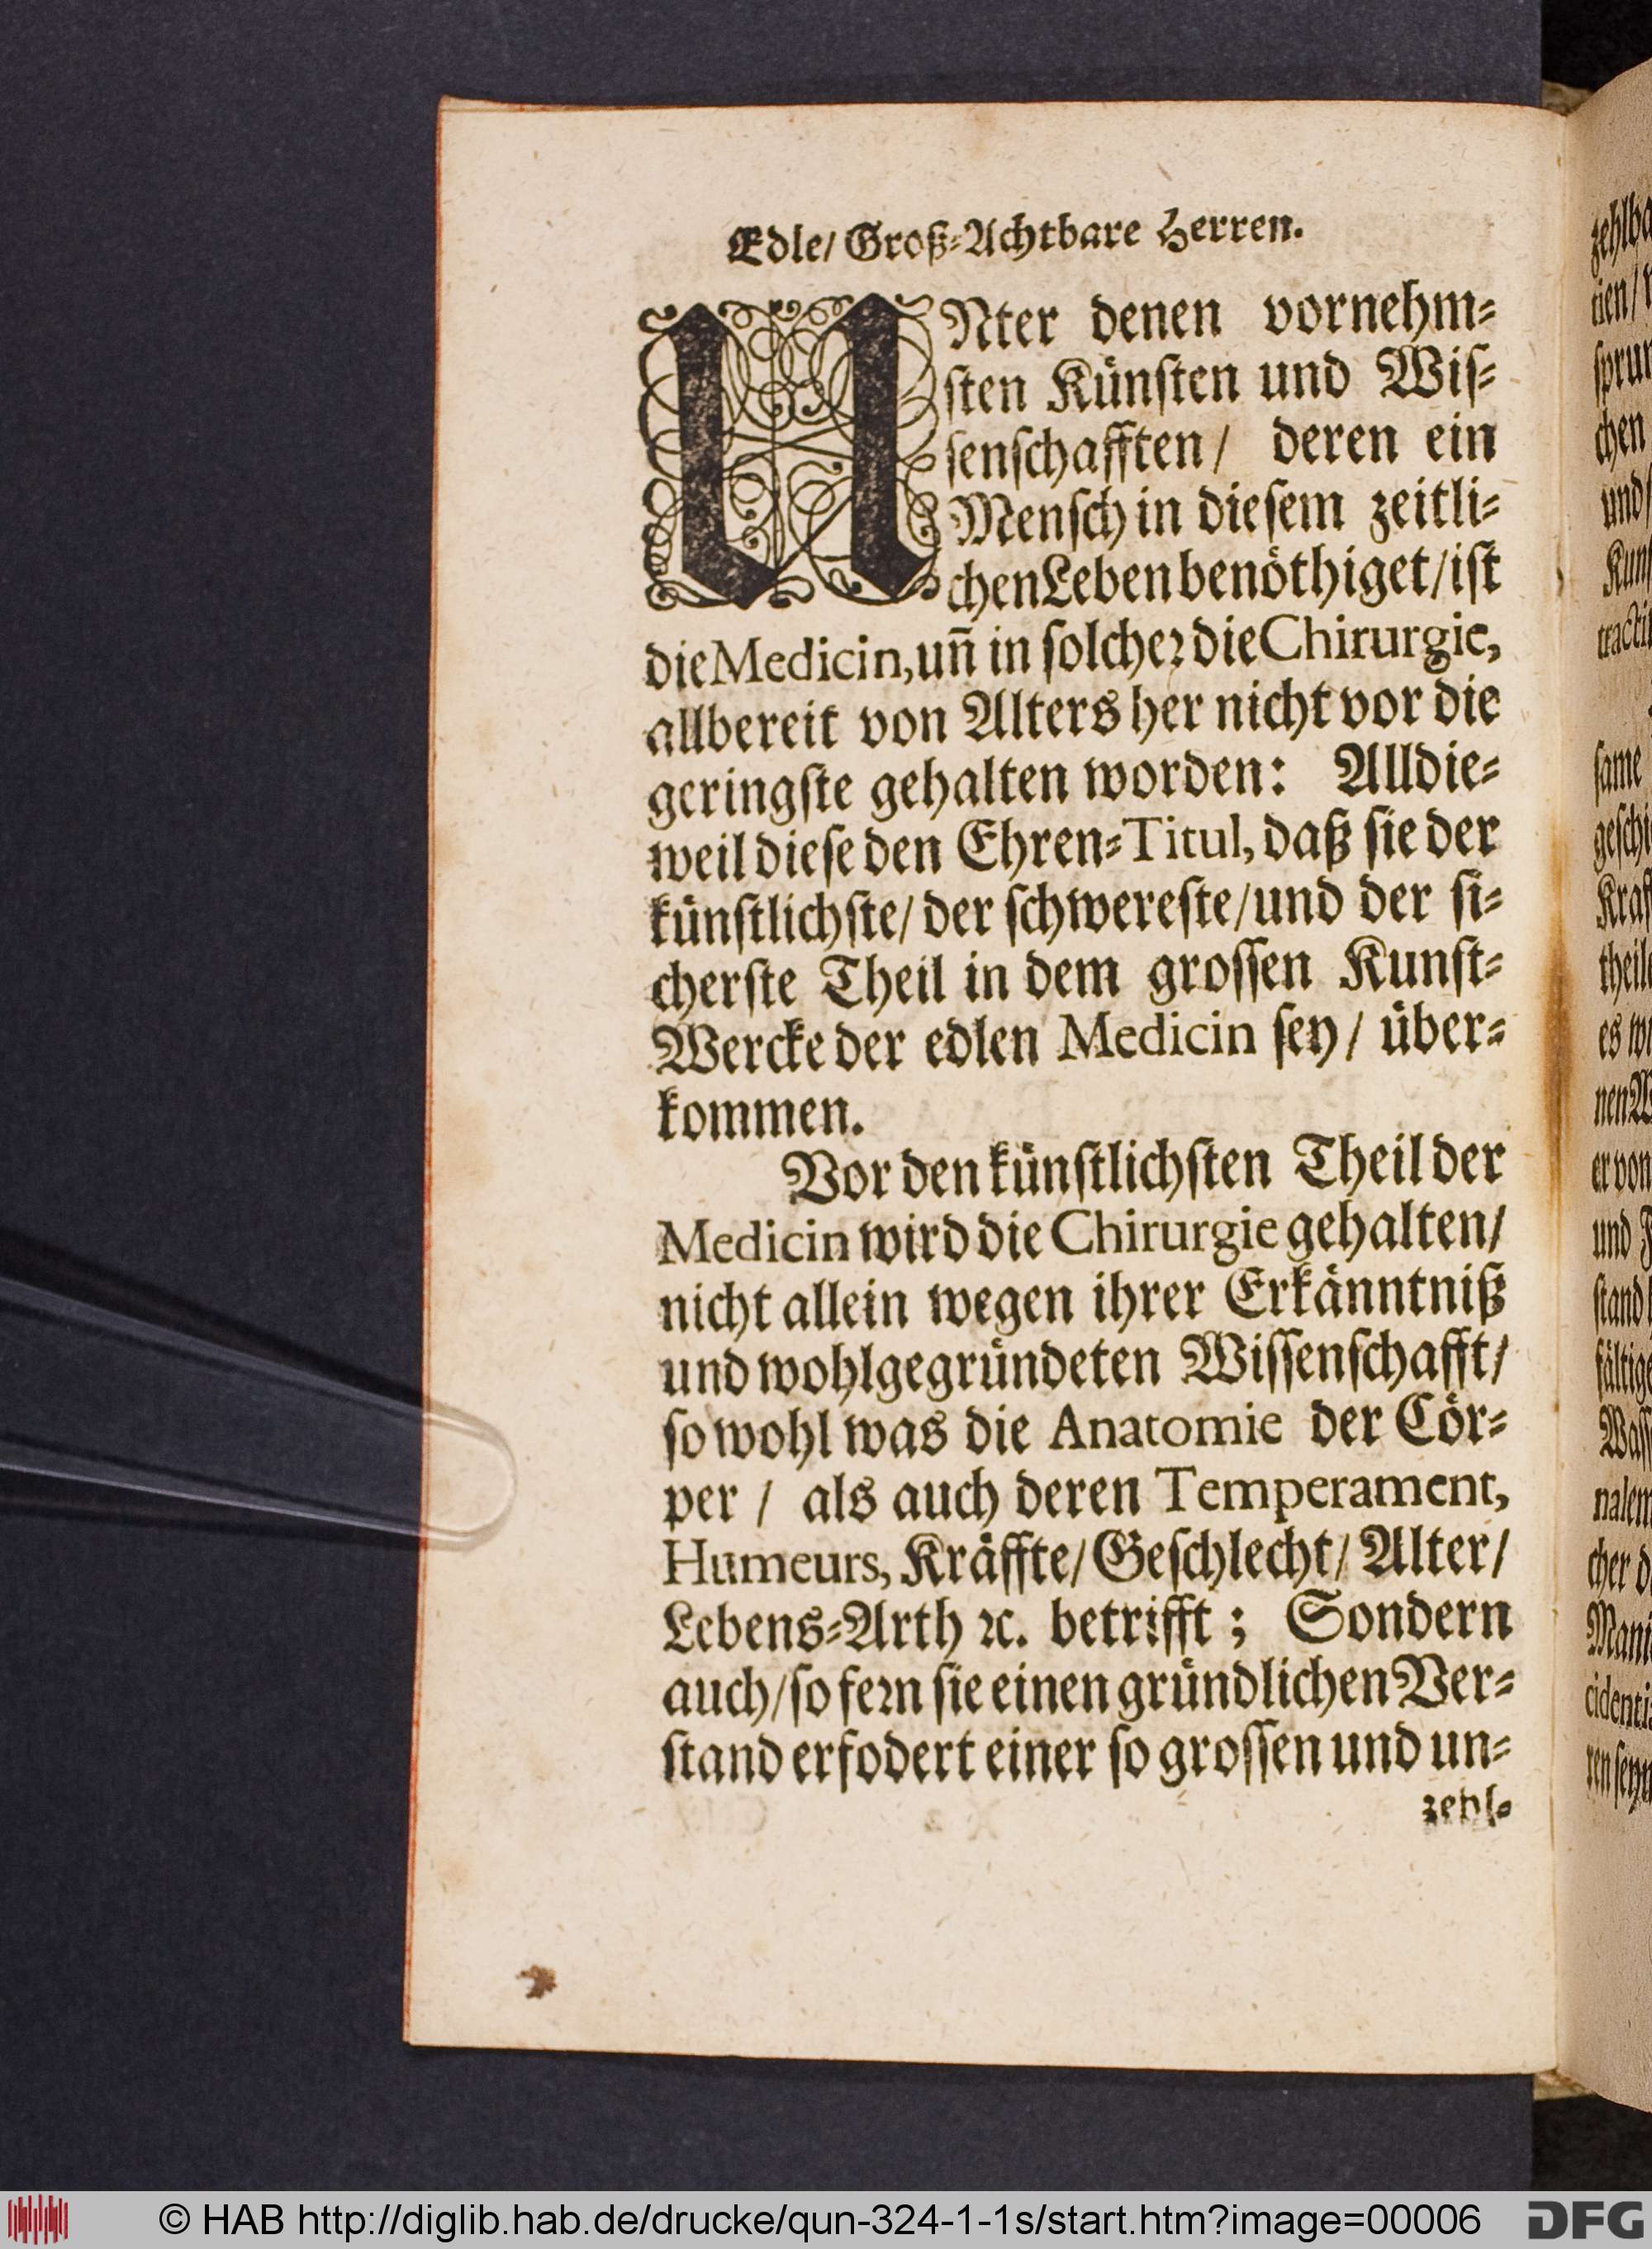 Edle/ Groß-Achtbare Herren.
UNter denen vornehm-
ſten Künſten und Wiſ-
ſenſchafften/ deren ein
Menſch in dieſem zeitli-
chen Leben benöthiget/ iſt
die Medicin, uñ in ſolcher die Chirurgie,
allbereit von Alters her nicht vor die
geringſte gehalten worden: Alldie-
weil dieſe den Ehren-Titul, daß ſie der
künſtlichſte/ der ſchwereſte/ und der ſi-
cherſte Theil in dem groſſen Kunſt-
Wercke der edlen Medicin ſey/ über-
kommen.
Vor den künſtlichſten Theil der
Medicin wird die Chirurgie gehalten/
nicht allein wegen ihrer Erkänntniß
und wohlgegründeten Wiſſenſchafft/
ſo wohl was die Anatomie der Cör-
per / als auch deren Temperament,
Humeurs, Kräffte/ Geſchlecht/ Alter/
Lebens-Arth ꝛc. betrifft; Sondern
auch/ ſo fern ſie einen gründlichen Ver-
ſtand erfodert einer ſo groſſen und un-
zehl-
tien/
chen
und/
ſame
theile
es
er von
und
© HAB http://diglib.hab.de/drucke/qun-324-1-1s/start.htm?image=00006
DFG